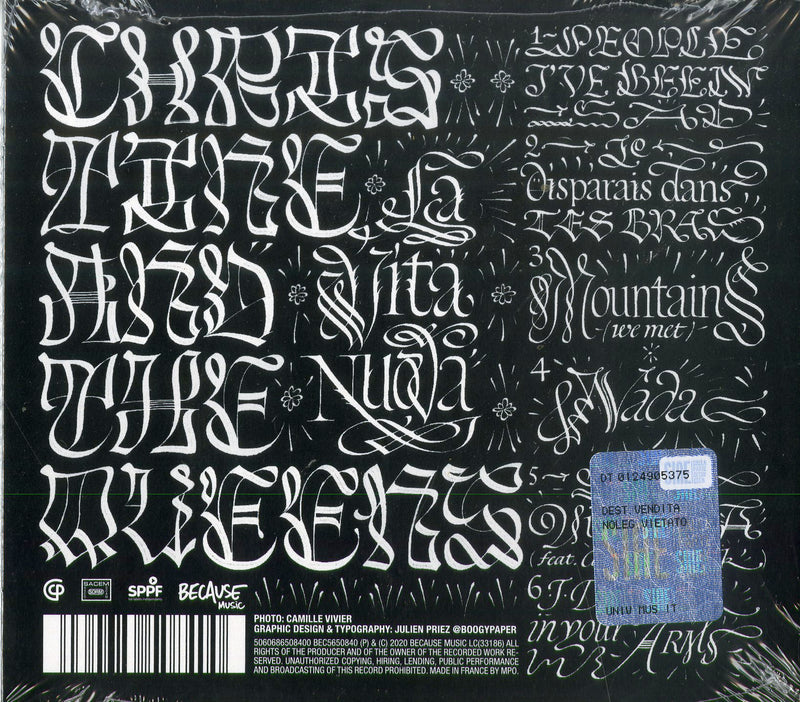 CHRIS
TINE La
AND Vita
THE Nuova
QUEENS
1 PEOPLE
I'VE BEEN
SAD
2 Je
disparais dans
TES BRAS
3
Mountains
(we met)
4
Nada
5
feat.
6 I
in your ARMS
DT 0124905375
DEST.VENDITA
NOLEG.VIETATO
SIAE
UNIV MUS IT
CP
SACEM
SDRM
SPPF
BECAUSE
MUSIC
PHOTO: CAMILLE VIVIER
GRAPHIC DESIGN & TYPOGRAPHY: JULIEN PRIEZ @BOOGYPAPER
5060686508400 BEC5650840 (P) & (C) 2020 BECAUSE MUSIC LC(33186) ALL
RIGHTS OF THE PRODUCER AND OF THE OWNER OF THE RECORDED WORK RE-
SERVED. UNAUTHORIZED COPYING, HIRING, LENDING, PUBLIC PERFORMANCE
AND BROADCASTING OF THIS RECORD PROHIBITED. MADE IN FRANCE BY MPO.